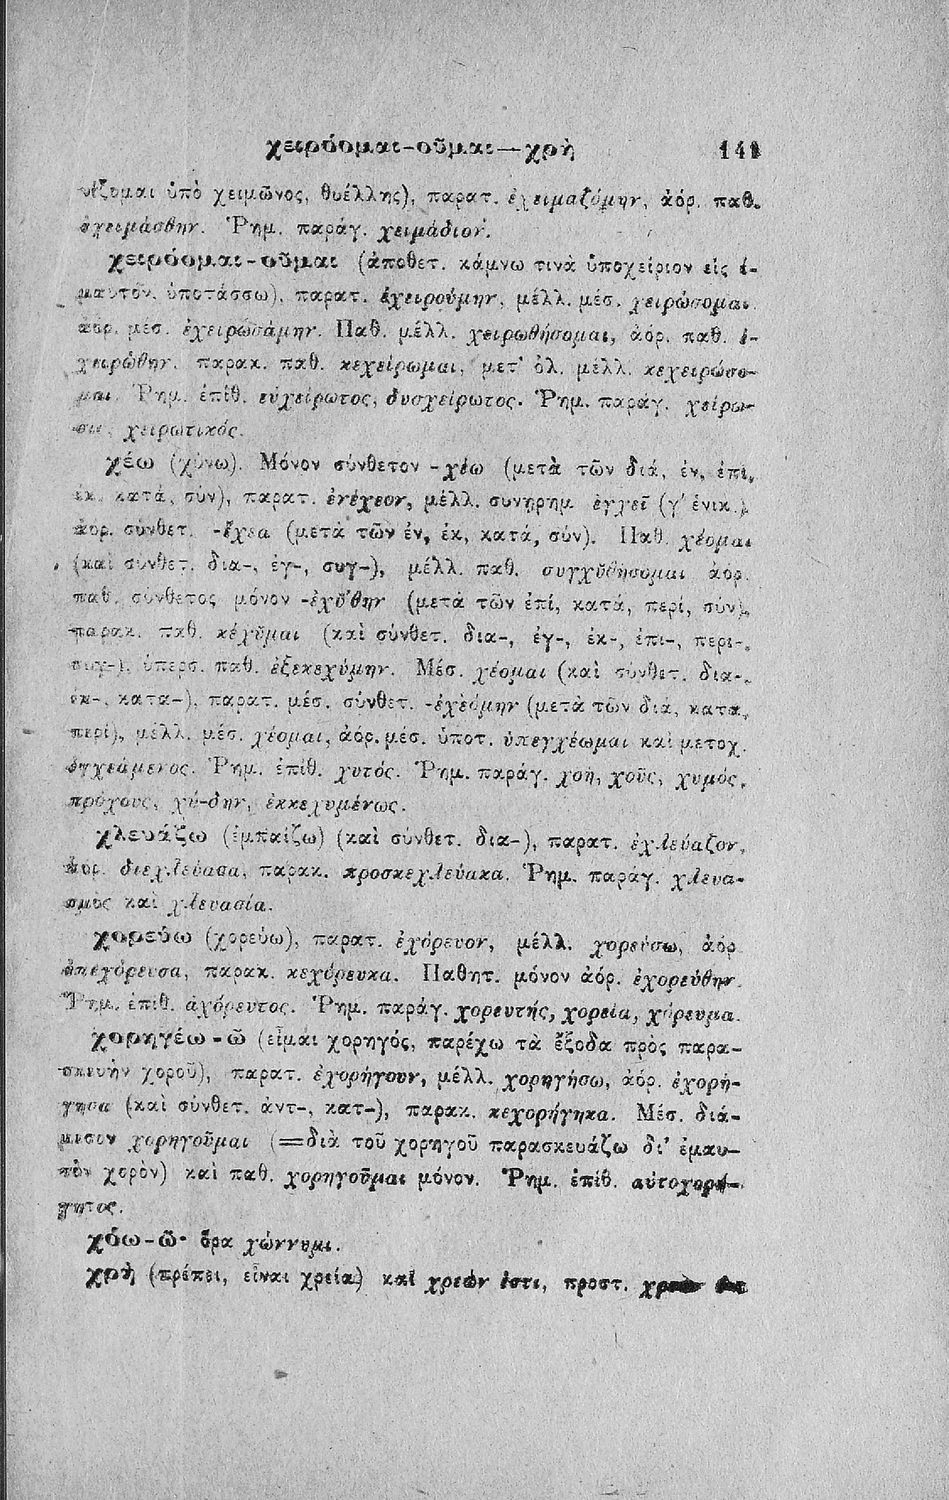 χειρόομαι-οῦμαι—χρὴ 141
νίζομαι ὑπὸ χειμῶνος, θυέλλης), παρατ. ἐχειμαζόμην, ἀόρ. παθ.
ἐχειμάσθην. Ῥημ. παράγ. χειμάδιον.
χειρόομαι-οῦμαι (ἀποθετ. κάμνω τινὰ ὑποχείριον εἰς ἐ-
μαυτόν, ὑποτάσσω), παρατ. ἐχειρούμην, μέλλ. μέσ. χειρώσομαι
ἀόρ. μέσ. ἐχειρωσάμην. Παθ. μέλλ. χειρωθήσομαι, ἀόρ. παθ. ἐ-
χειρώθην, παρακ. παθ. κεχείρωμαι, μετ' ὀλ. μέλλ. κεχειρώσο-
μαι. Ῥημ. ἐπίθ. εὐχείρωτος, δυσχείρωτος. Ῥημ. παράγ. χείρω-
σις, χειρωτικός.
χέω (χύνω). Μόνον σύνθετον -χέω (μετὰ τῶν διά, ἐν, ἐπί,
ἐκ, κατά, σύν), παρατ. ἐνέχεον, μέλλ. συνῃρημ ἐγχεῖ (γ' ἑνικ.),
ἀόρ. σύνθετ. -ἔχεα (μετὰ τῶν ἐν, ἐκ, κατά, σύν). Παθ. χέομαι
(καὶ σύνθετ. δια-, ἐγ-, συγ-), μέλλ. παθ. συγχῠθήσομαι ἀόρ.
παθ. σύνθετος μόνον -ἐχῠ́θην (μετὰ τῶν ἐπί, κατά, περί, σύν),
παρακ. παθ. κέχῠμαι (καὶ σύνθετ. δια-, ἐγ-, ἐκ-, ἐπι-, περι-,
συγ-), ὑπερσ. παθ. ἐξεκεχύμην. Μέσ. χέομαι (καὶ σύνθετ. δια-,
ἐκ-, κατα-), παρατ. μέσ. σύνθετ. -ἐχεόμην (μετὰ τῶν διά, κατα,
περί), μέλλ. μέσ. χέομαι, ἀόρ. μέσ. ὑποτ. ὑπεγχέωμαι καὶ μετοχ.
ἐγχεάμενος. Ῥημ. ἐπίθ. χυτός. Ῥημ. παράγ. χοή, χοῦς, χυμός,
πρόχους, χύ-δην, ἐκκεχυμένως.
χλευάζω (ἐμπαίζω) (καὶ σύνθετ. δια-), παρατ. ἐχλεύαζον,
ἀόρ. διεχλεύασα, παρακ. προσκεχλεύακα. Ῥημ. παράγ. χλευα-
σμὸς καὶ χλευασία.
χορεύω (χορεύω), παρατ. ἐχόρευον, μέλλ. χορεύσω, ἀόρ
ἀπεχόρευσα, παρακ. κεχόρευκα. Παθητ. μόνον ἀόρ. ἐχορεύθην.
Ῥημ. ἐπίθ. ἀχόρευτος. Ῥημ. παράγ. χορευτής, χορεία, χόρευμα.
χορηγέω-ῶ (εἶμαι χορηγός, παρέχω τὰ ἔξοδα πρὸς παρα-
σκευὴν χοροῦ), παρατ. ἐχορήγουν, μέλλ. χορηγήσω, ἀόρ. ἐχορή-
γησα (καὶ σύνθετ. ἀντ-, κατ-), παρακ. κεχορήγηκα. Μέσ. διά-
μεσον χορηγοῦμαι (=διὰ τοῦ χορηγοῦ παρασκευάζω δι' ἐμαυ-
τὸν χορὸν) καὶ παθ. χορηγοῦμαι μόνον. Ῥημ. ἐπίθ. αὐτοχορή-
γητος.
χόω-ῶ· ὅρα χώννυμι.
χρὴ (πρέπει, εἶναι χρεία) καὶ χρεών ἐστι, προστ.